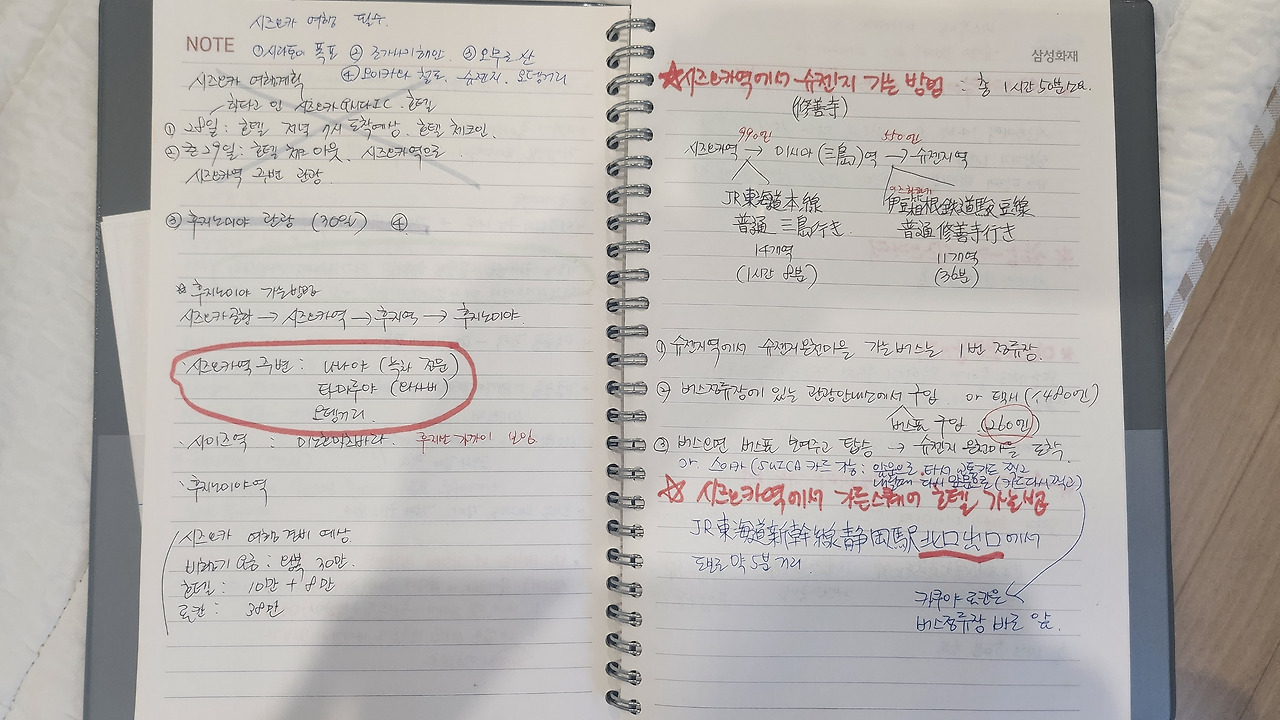 시즈오카 여행 필수.
NOTE
① 시라이토 폭포 ② 조가사키해안 ③ 오무로 산
④ 오이가와 철도. 슈젠지. 오뎅거리
시즈오카 여행계획
① 28일 : 호텔 저녁 7시 도착예상. 호텔 체크인.
② 29일 : 호텔 체크아웃. 시즈오카역으로.
시즈오카역 주변 관광.
③ 후지노미야 관광 (30일) ④
* 후지노미야 가는방법
시즈오카공항 → 시즈오카역 → 후지역 → 후지노미야.
시즈오카역 주변 : 나나야 (녹차 전문)
타마루야 (와사비)
오뎅거리
후지노미야역
시즈오카 여행 경비 예상
비행기 요금 : 왕복 30만.
호텔 : 10만 + 8만
료칸 : 38만
삼성화재
☆시즈오카역에서 슈젠지 가는 방법 : 총 1시간 50분소요.
(修善寺)
990엔 550엔
시즈오카역 → 미시마 (三島)역 → 슈젠지역
JR東海道本線 伊豆箱根鉄道駿豆線
普通 三島行き. 普通 修善寺行き
14개역 11개역
(1시간 8분) (36분)
① 슈젠지역에서 슈젠지온천마을 가는버스는 1번 정류장.
② 버스정류장에 있는 관광안내소에서 구입. or 택시 (1,480엔)
버스표 구입 (260엔)
③ 버스오면 버스표 보여주고 탑승 → 슈젠지 온천마을 도착.
☆ 시즈오카역에서 가든스퀘어 호텔 가는법
JR東海道新幹線静岡駅北口出口에서
도보로 약 5분 거리.
버스정류장 바로 앞.